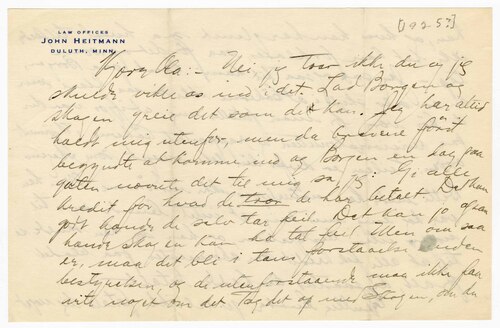 LAW OFFICES
JOHN HEITMANN
DULUTH, MINN.
[192-5?]
Kjære Ola:- Nei jeg tror ikke du og jeg
skulde vikle os ind i det. Lad Borgen og
Skogen greie det som de kan. Jeg har altid
holdt mig utenfor, men da brevene først
begyndte at komme ind og Borgen en dag paa
gaten nævnte det til mig sa jeg: Gi alle
kredit for hvad de tror de har betalt. Det kan
godt hænde de selv tar feil. Det kan jo ogsaa
hænde Skogen kan ha tat feil. Men om saa
er, maa det bli i taus forstaaelse inden
bestyrelsen, og de utenforstaaende maa ikke faa
vite noget om det. Tag det op med Skogen, om du